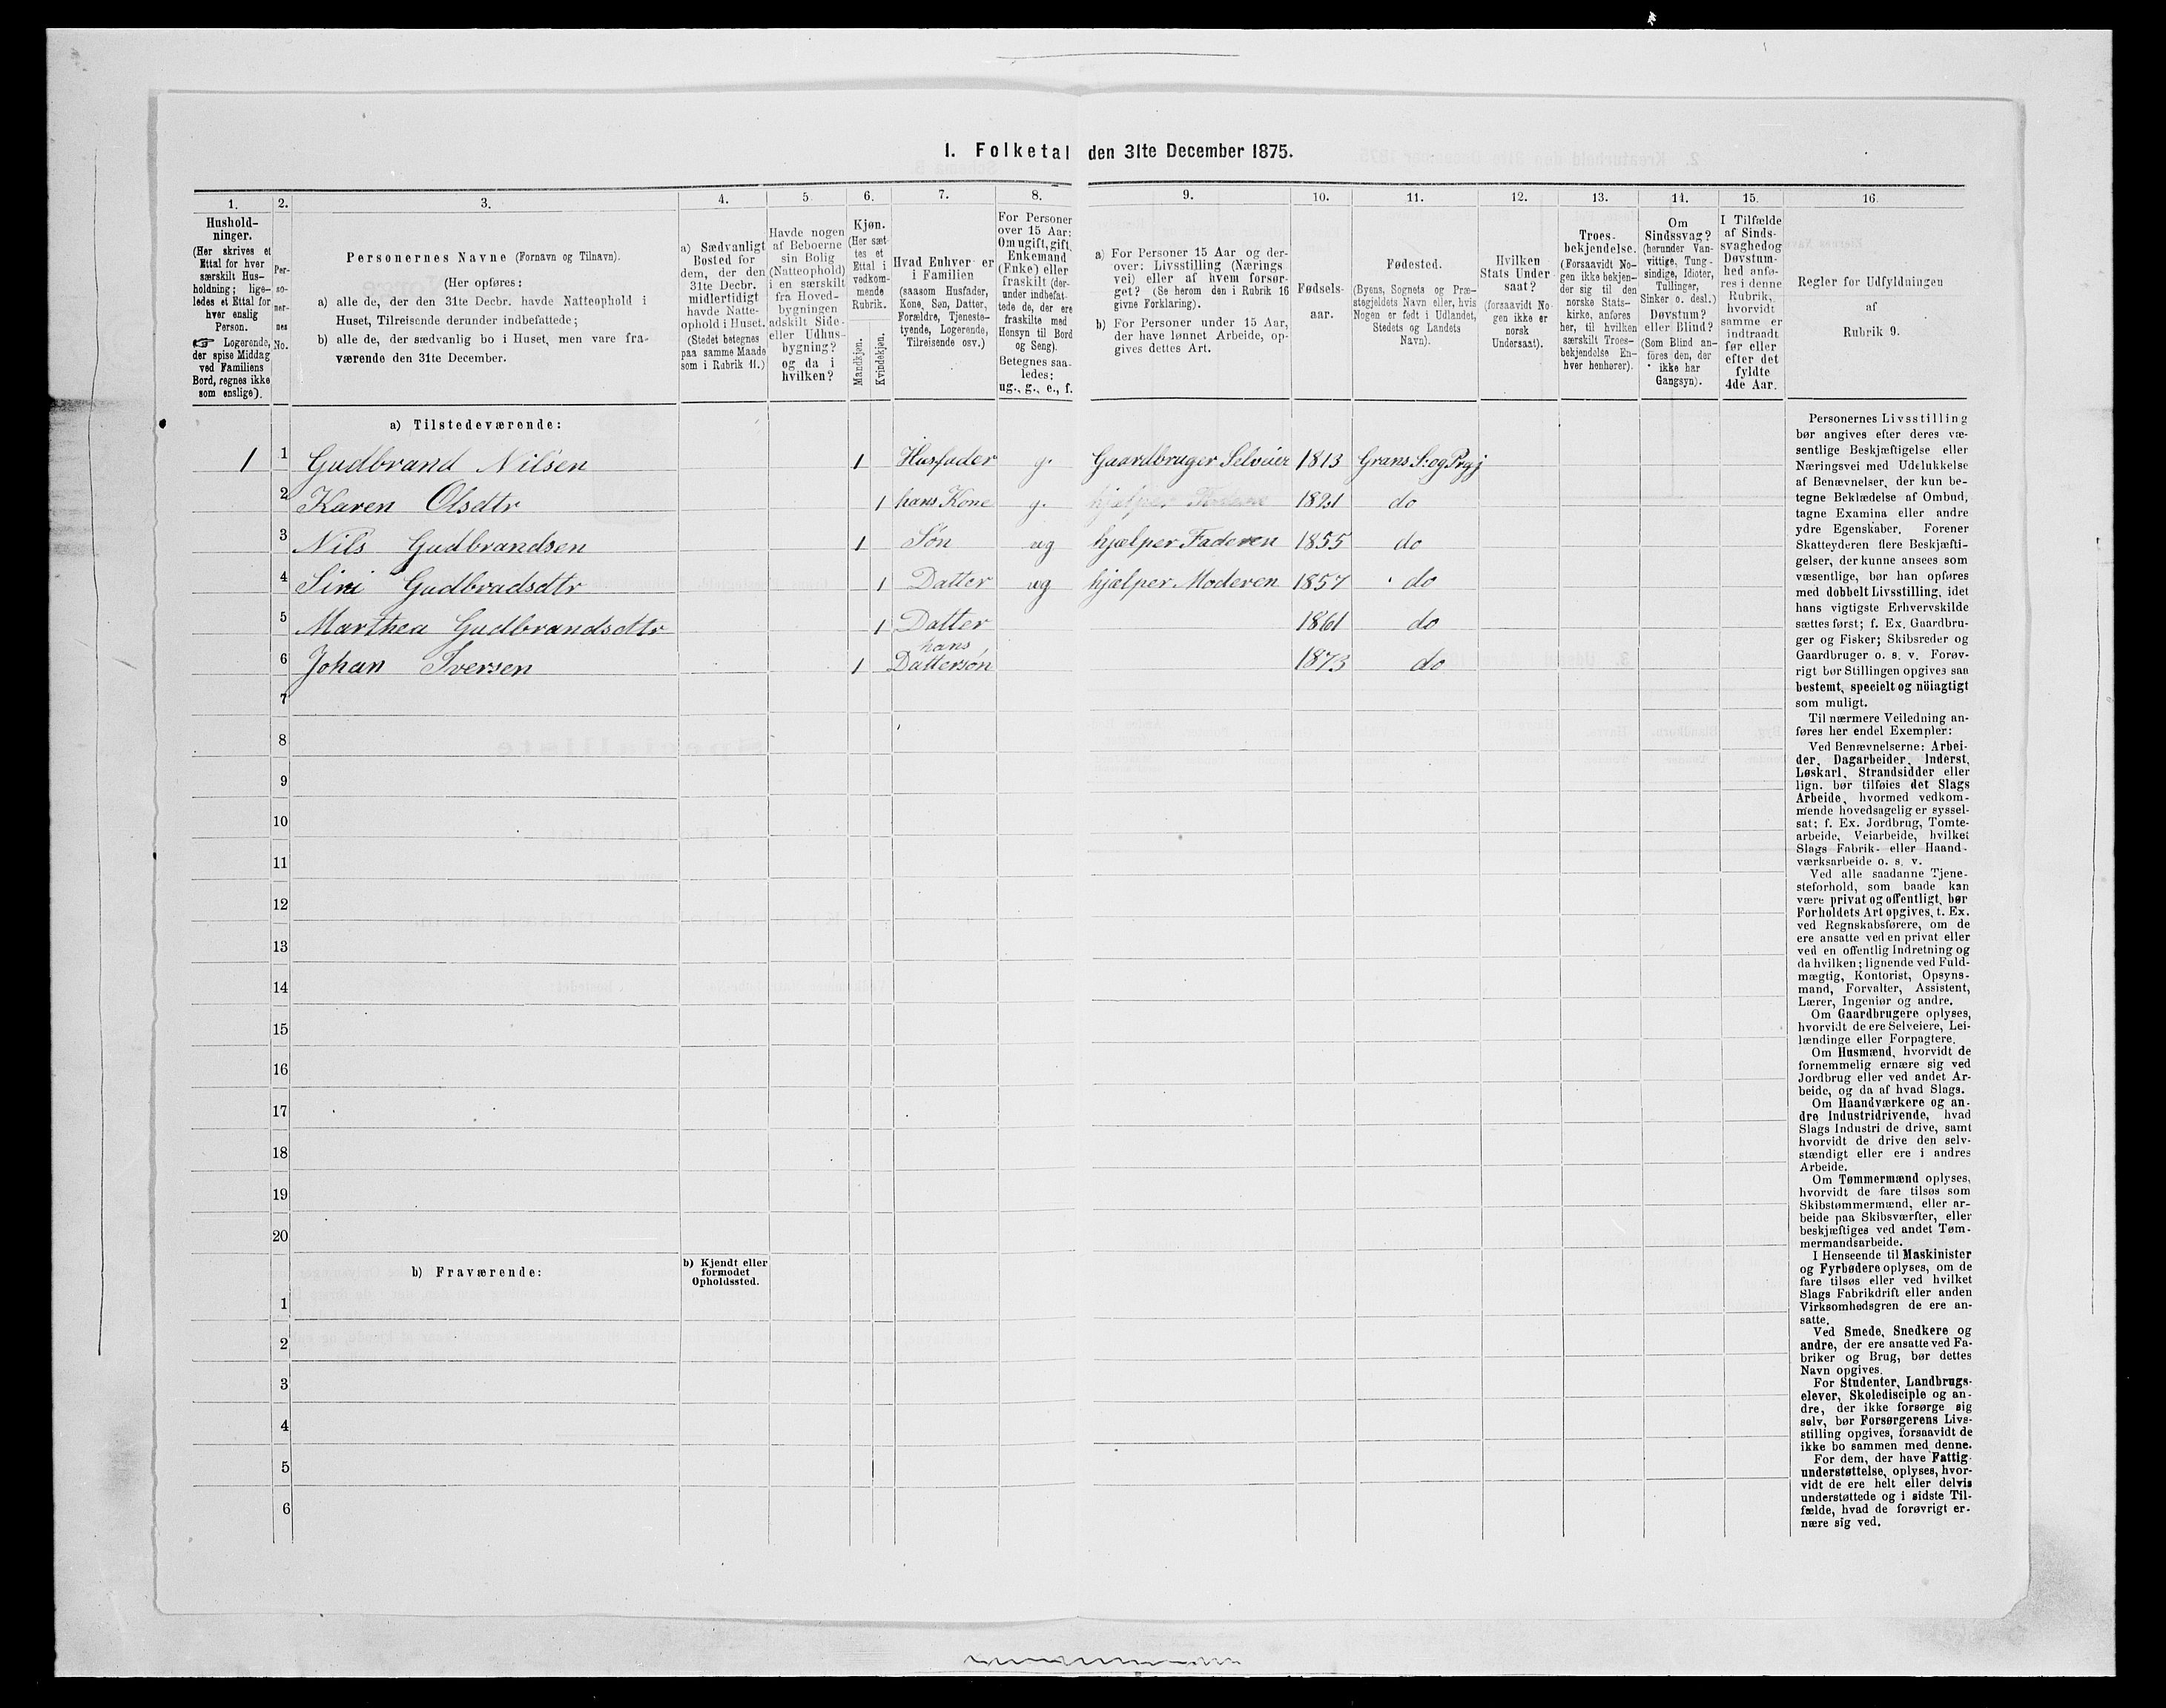 1. Folketal den 31te December 1875.
1.
2.
3.
4.
5
6.
7.
8.
9.
10.
11.
12.
13.
14.
15.
16.
Hushold-
ninger.
(Her skrives et
Ettal for hver
særskilt Hus-
holdning; lige-
ledes et Ettal for
hver enslig
Person.
☞ Logerende,
der spise Middag
ved Familiens
Bord, regnes ikke
som enslige).
Per-
so-
ner-
nes
No.
Personernes Navne (Fornavn og Tilnavn).
(Her opføres:
a) alle de, der den 31te Decbr. havde Natteophold i
Huset, Tilreisende derunder indbefattede;
b) alle de, der sædvanlig bo i Huset, men vare fra-
værende den 31te December.
a) Sædvanligt
Bosted for
dem, der den
31te Decbr.
midlertidigt
havde Natte-
ophold i Huset.
(Stedet betegnes
paa samme Maade
som i Rubrik 11.)
Havde nogen
af Beboerne
sin Bolig
(Natteophold)
i en særskilt
fra Hoved-
bygningen
adskilt Side-
eller Udhus-
bygning?
og da i
hvilken?
Kjøn.
(Her sæt-
tes et
Ettal i
vedkom-
mende
Rubrik.
Mandkjøn.
Kvindekjøn.
Hvad Enhver er
i Familien
(saasom Husfader,
Kone, Søn, Datter,
Forældre, Tjeneste-
tyende, Logerende,
Tilreisende osv.)
For Personer
over 15 Aar:
Om ugift, gift,
Enkemand
(Enke) eller
fraskilt (der-
under indbefat-
tede de, der ere
fraskilte med
Hensyn til Bord
og Seng).
Betegnes saa-
ledes:
ug., g., e., f.
a) For Personer 15 Aar og der-
over: Livsstilling (Nærings
vei) eller af hvem forsør-
get? (Se herom den i Rubrik 16
givne Forklaring).
b) For Personer under 15 Aar,
der have lønnet Arbeide, op-
gives dettes Art.
Fødsels-
aar.
Fødested.
(Byens, Sognets og Præ-
stegjeldets Navn eller, hvis
Nogen er født i Udlandet,
Stedets og Landets
Navn).
Hvilken
Stats Under-
saat?
(forsaavidt No-
gen ikke er
norsk
Undersaat).
Troes-
bekjendelse.
(Forsaavidt No-
gen ikke bekjen-
der sig til den
norske Stats-
kirke, anføres
her, til hvilken
særskilt Troes-
bekjendelse En-
hver henhører).
Om
Sindssvag?
(herunder Van-
vittige, Tung-
sindige, Idioter,
Tullinger,
Sinker o. desl.)
Døvstum?
eller Blind?
(Som Blind an-
föres den, der
ikke har
Gangsyn).
I Tilfælde
af Sinds-
svaghed og
Døvstum-
hed anfø-
res i denne
Rubrik,
hvorvidt
samme er
indtraadt
før eller
efter det
fyldte
4de Aar.
Regler for Udfyldningen
af
Rubrik 9.
a) Tilstedeværende:
1 1 Gudbrand Nilsen 1 Husfader g. Gaardbruger Selveier 1813 Grans S: og Prgj
2 Karen Olsdtr 1 hans Kone g. 1821 do
3 Nils Gudbrandsen 1 Søn ug hjælper Faderen 1855 do
4 Siri Gudbradsdtr 1 Datter ug hjælper Moderen 1857 do
5 Marthea Gudbrandsdtr 1 Datter 1861 do
6 Johan Iversen 1 hans Dattersøn 1873 do
7
8
9
10
11
12
13
14
15
16
17
18
19
20
b) Fraværende:
b) Kjendt eller
formodet
Opholdssted.
1
2
3
4
5
6
Personernes Livsstilling
bør angives efter deres væ-
sentlige Beskjæftigelse eller
Næringsvei med Udelukkelse
af Benævnelser, der kun be-
tegne Beklædelse af Ombud,
tagne Examina eller andre
ydre Egenskaber. Forener
Skatteyderen flere Beskjæfti-
gelser, der kunne ansees som
væsentlige, bør han opføres
med dobbelt Livsstilling, idet
hans vigtigste Erhvervskilde
sættes først; f. Ex. Gaardbru-
ger og Fisker; Skibsreder og
Gaardbruger o. s. v. Forøv-
rigt bør Stillingen opgives saa
bestemt, specielt og nöiagtigt
som muligt.
Til nærmere Veiledning an-
føres her endel Exempler:
Ved Benævnelserne: Arbei-
der, Dagarbeider, Inderst,
Løskarl, Strandsidder eller
lign. bør tilføies det Slags
Arbeide, hvormed vedkom-
mende hovedsagelig er syssel-
sat; f. Ex. Jordbrug, Tomte-
arbeide, Veiarbeide, hvilket
Slags Fabrik- eller Haand-
værksarbeide o. s. v.
Ved alle saadanne Tjene-
steforhold, som baade kan
være privat og offentligt, bør
Forholdets Art opgives, t. Ex.
ved Regnskabsførere, om de
ere ansatte ved en privat eller
ved en offentlig Indretning og
da hvilken; lignende ved Fuld-
mægtig, Kontorist, Opsyns-
mand, Forvalter, Assistent,
Lærer, Ingeniør og andre.
Om Gaardbrugere oplyses,
hvorvidt de ere Selveiere, Lei-
lændinge eller Forpagtere.
Om Husmænd, hvorvidt de
fornemmelig ernære sig ved
Jordbrug eller ved andet Ar-
beide, og da af hvad Slags.
Om Haandværkere og an-
dre Industridrivende, hvad
Slags Industri de drive, samt
hvorvidt de drive den selv-
stændigt eller ere i andres
Arbeide.
Om Tømmermænd oplyses,
hvorvidt de fare tilsøs som
Skibstømmermænd, eller ar-
beide paa Skibsværfter, eller
beskjæftiges ved andet Tøm-
mermandsarbeide.
I Henseende til Maskinister
og Fyrbødere oplyses, om de
fare tilsøs eller ved hvilket
Slags Fabrikdrift eller anden
Virksomhedsgren de ere an-
satte.
Ved Smede, Snedkere og
andre, der ere ansatte ved Fa-
briker og Brug, bør dettes
Navn opgives.
For Studenter, Landbrugs-
elever, Skoledisciple og an-
dre, der ikke forsørge sig
selv, bør Forsørgerens Livs-
stilling opgives, forsaavidt de
ikke bo sammen med denne.
For dem, der have Fattig-
understøttelse, oplyses, hvor-
vidt de ere helt eller delvis
understøttede og i sidste Til-
fælde, hvad de forøvrigt er-
nære sig ved.